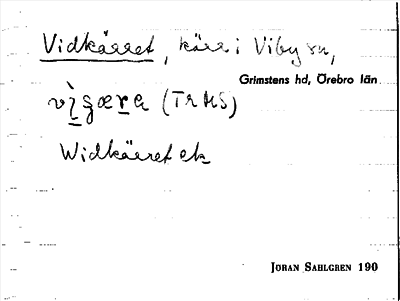 Vidkärret, kärr i Viby sn,
Grimstens hd, Örebro län
(TrMS)
Widkärret ek
JÖRAN SAHLGREN 190